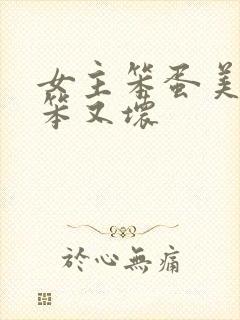 女主笨蛋美
笨又壞
於心無痛